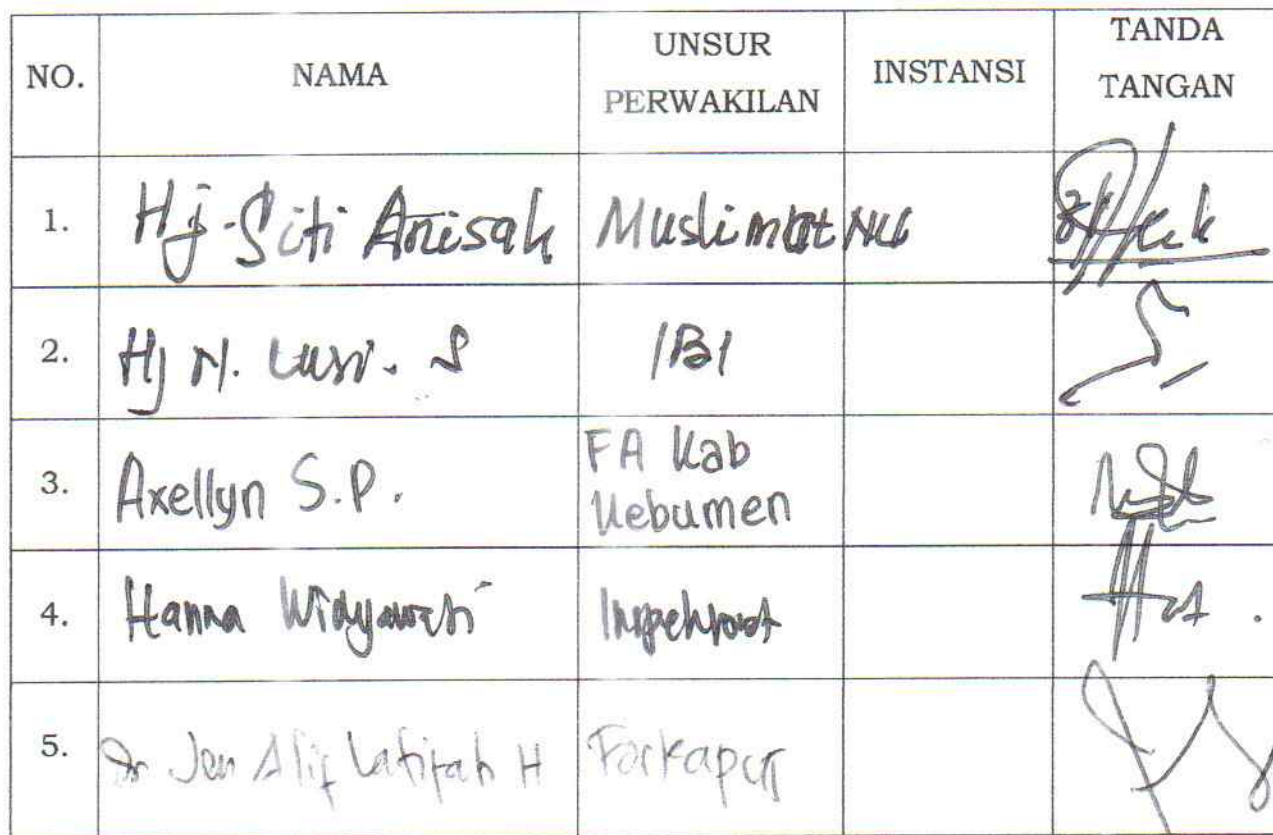 NO. NAMA UNSUR PERWAKILAN INSTANSI TANDA TANGAN
1. Hj. Siti Anisah Muslimat NU
2. Hj N. Lusi. S IBI
3. Axellyn S.P. FA Kab Kebumen
4. Hanna Widyawati Inspektorat
5. Dr Jen Alif Latifah H